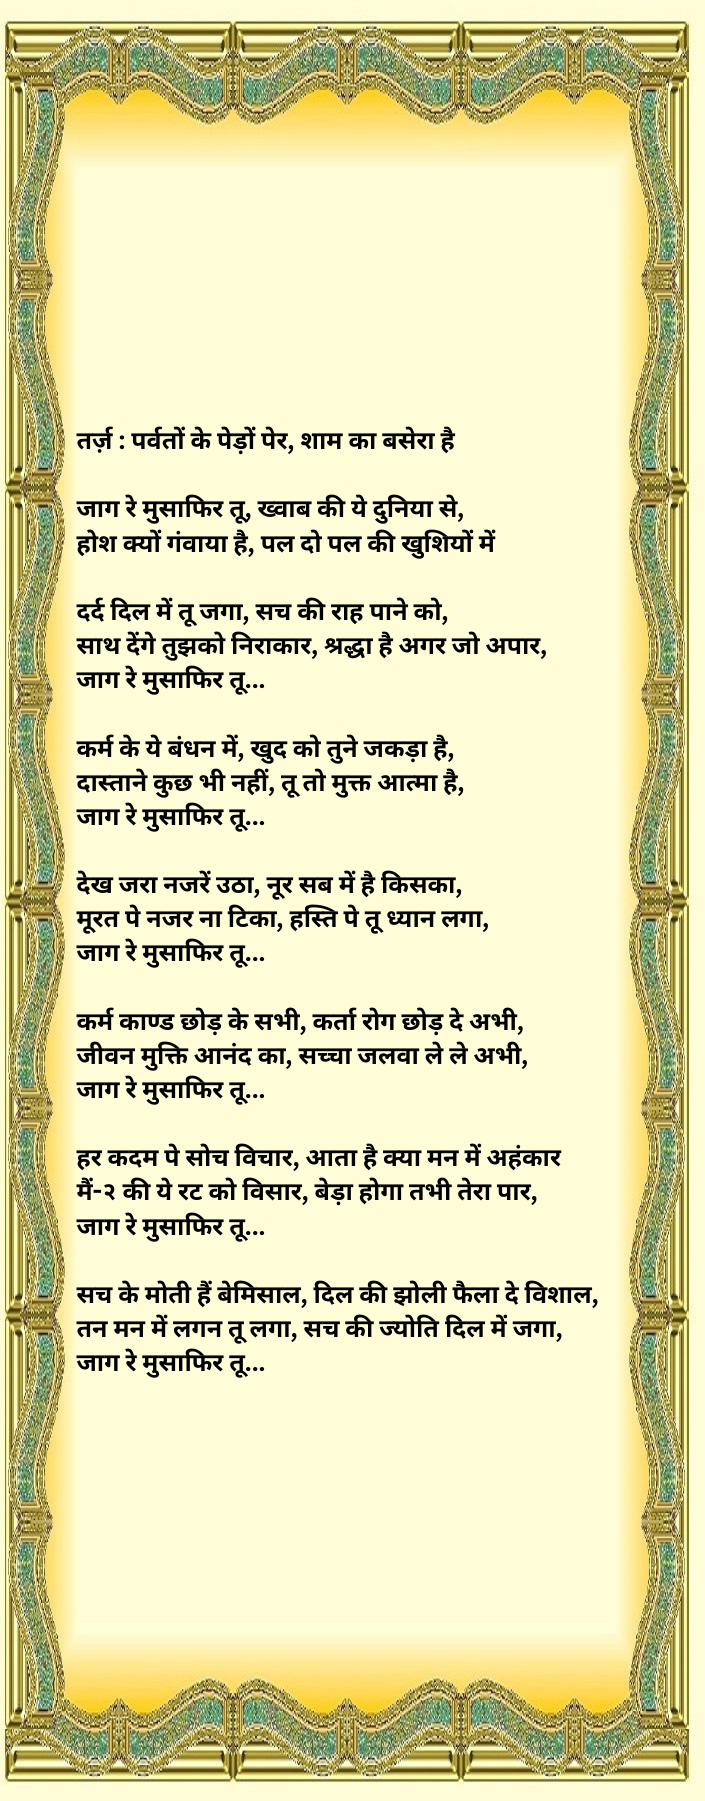 तर्ज़ : पर्वतों के पेड़ों पेर, शाम का बसेरा है
जाग रे मुसाफिर तू, ख्वाब की ये दुनिया से,
होश क्यों गंवाया है, पल दो पल की खुशियों में
दर्द दिल में तू जगा, सच की राह पाने को,
साथ देंगे तुझको निराकार, श्रद्धा है अगर जो अपार,
जाग रे मुसाफिर तू...
कर्म के ये बंधन में, खुद को तुने जकड़ा है,
दास्ताने कुछ भी नहीं, तू तो मुक्त आत्मा है,
जाग रे मुसाफिर तू...
देख जरा नजरें उठा, नूर सब में है किसका,
मूरत पे नजर ना टिका, हस्ति पे तू ध्यान लगा,
जाग रे मुसाफिर तू...
कर्म काण्ड छोड़ के सभी, कर्ता रोग छोड़ दे अभी,
जीवन मुक्ति आनंद का, सच्चा जलवा ले ले अभी,
जाग रे मुसाफिर तू...
हर कदम पे सोच विचार, आता है क्या मन में अहंकार
मैं-२ की ये रट को विसार, बेड़ा होगा तभी तेरा पार,
जाग रे मुसाफिर तू...
सच के मोती हैं बेमिसाल, दिल की झोली फैला दे विशाल,
तन मन में लगन तू लगा, सच की ज्योति दिल में जगा,
जाग रे मुसाफिर तू...